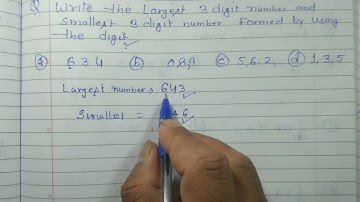 Q Write the Largest 3 digit number and
Smallest 3 digit number Formed by using
the digit
a 6 3 4 b 0,8,9 c 5,6,2, d 1,3,5
Largest number → 643
Smallest =